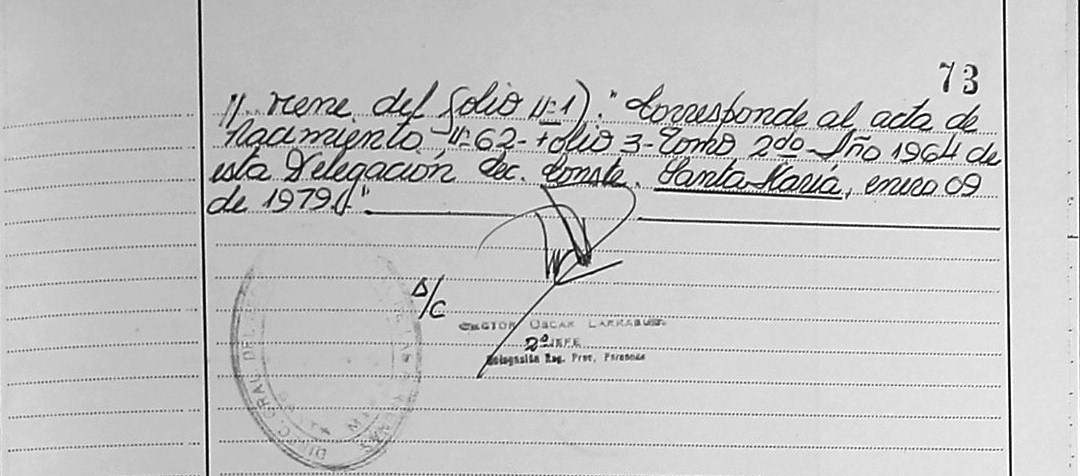 73
//. viene del folio Nº 1). "Corresponde al acta de
nacimiento Nº 62- folio 3- Tomo 2do Año 1964 de
esta Delegación Sec. Conste. Santa María, enero 09
de 1979."
A/C
OSCAR
2º JEFE
Delegación Reg. Prov.
DIREC. GRAL DEL